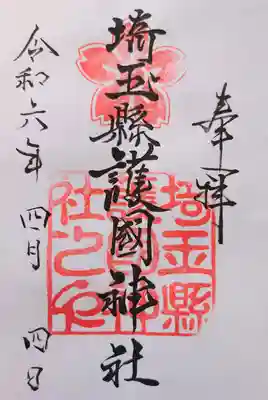 奉拝
埼玉縣護國神社
令和六年 四月 四日
埼玉縣護國神社之印